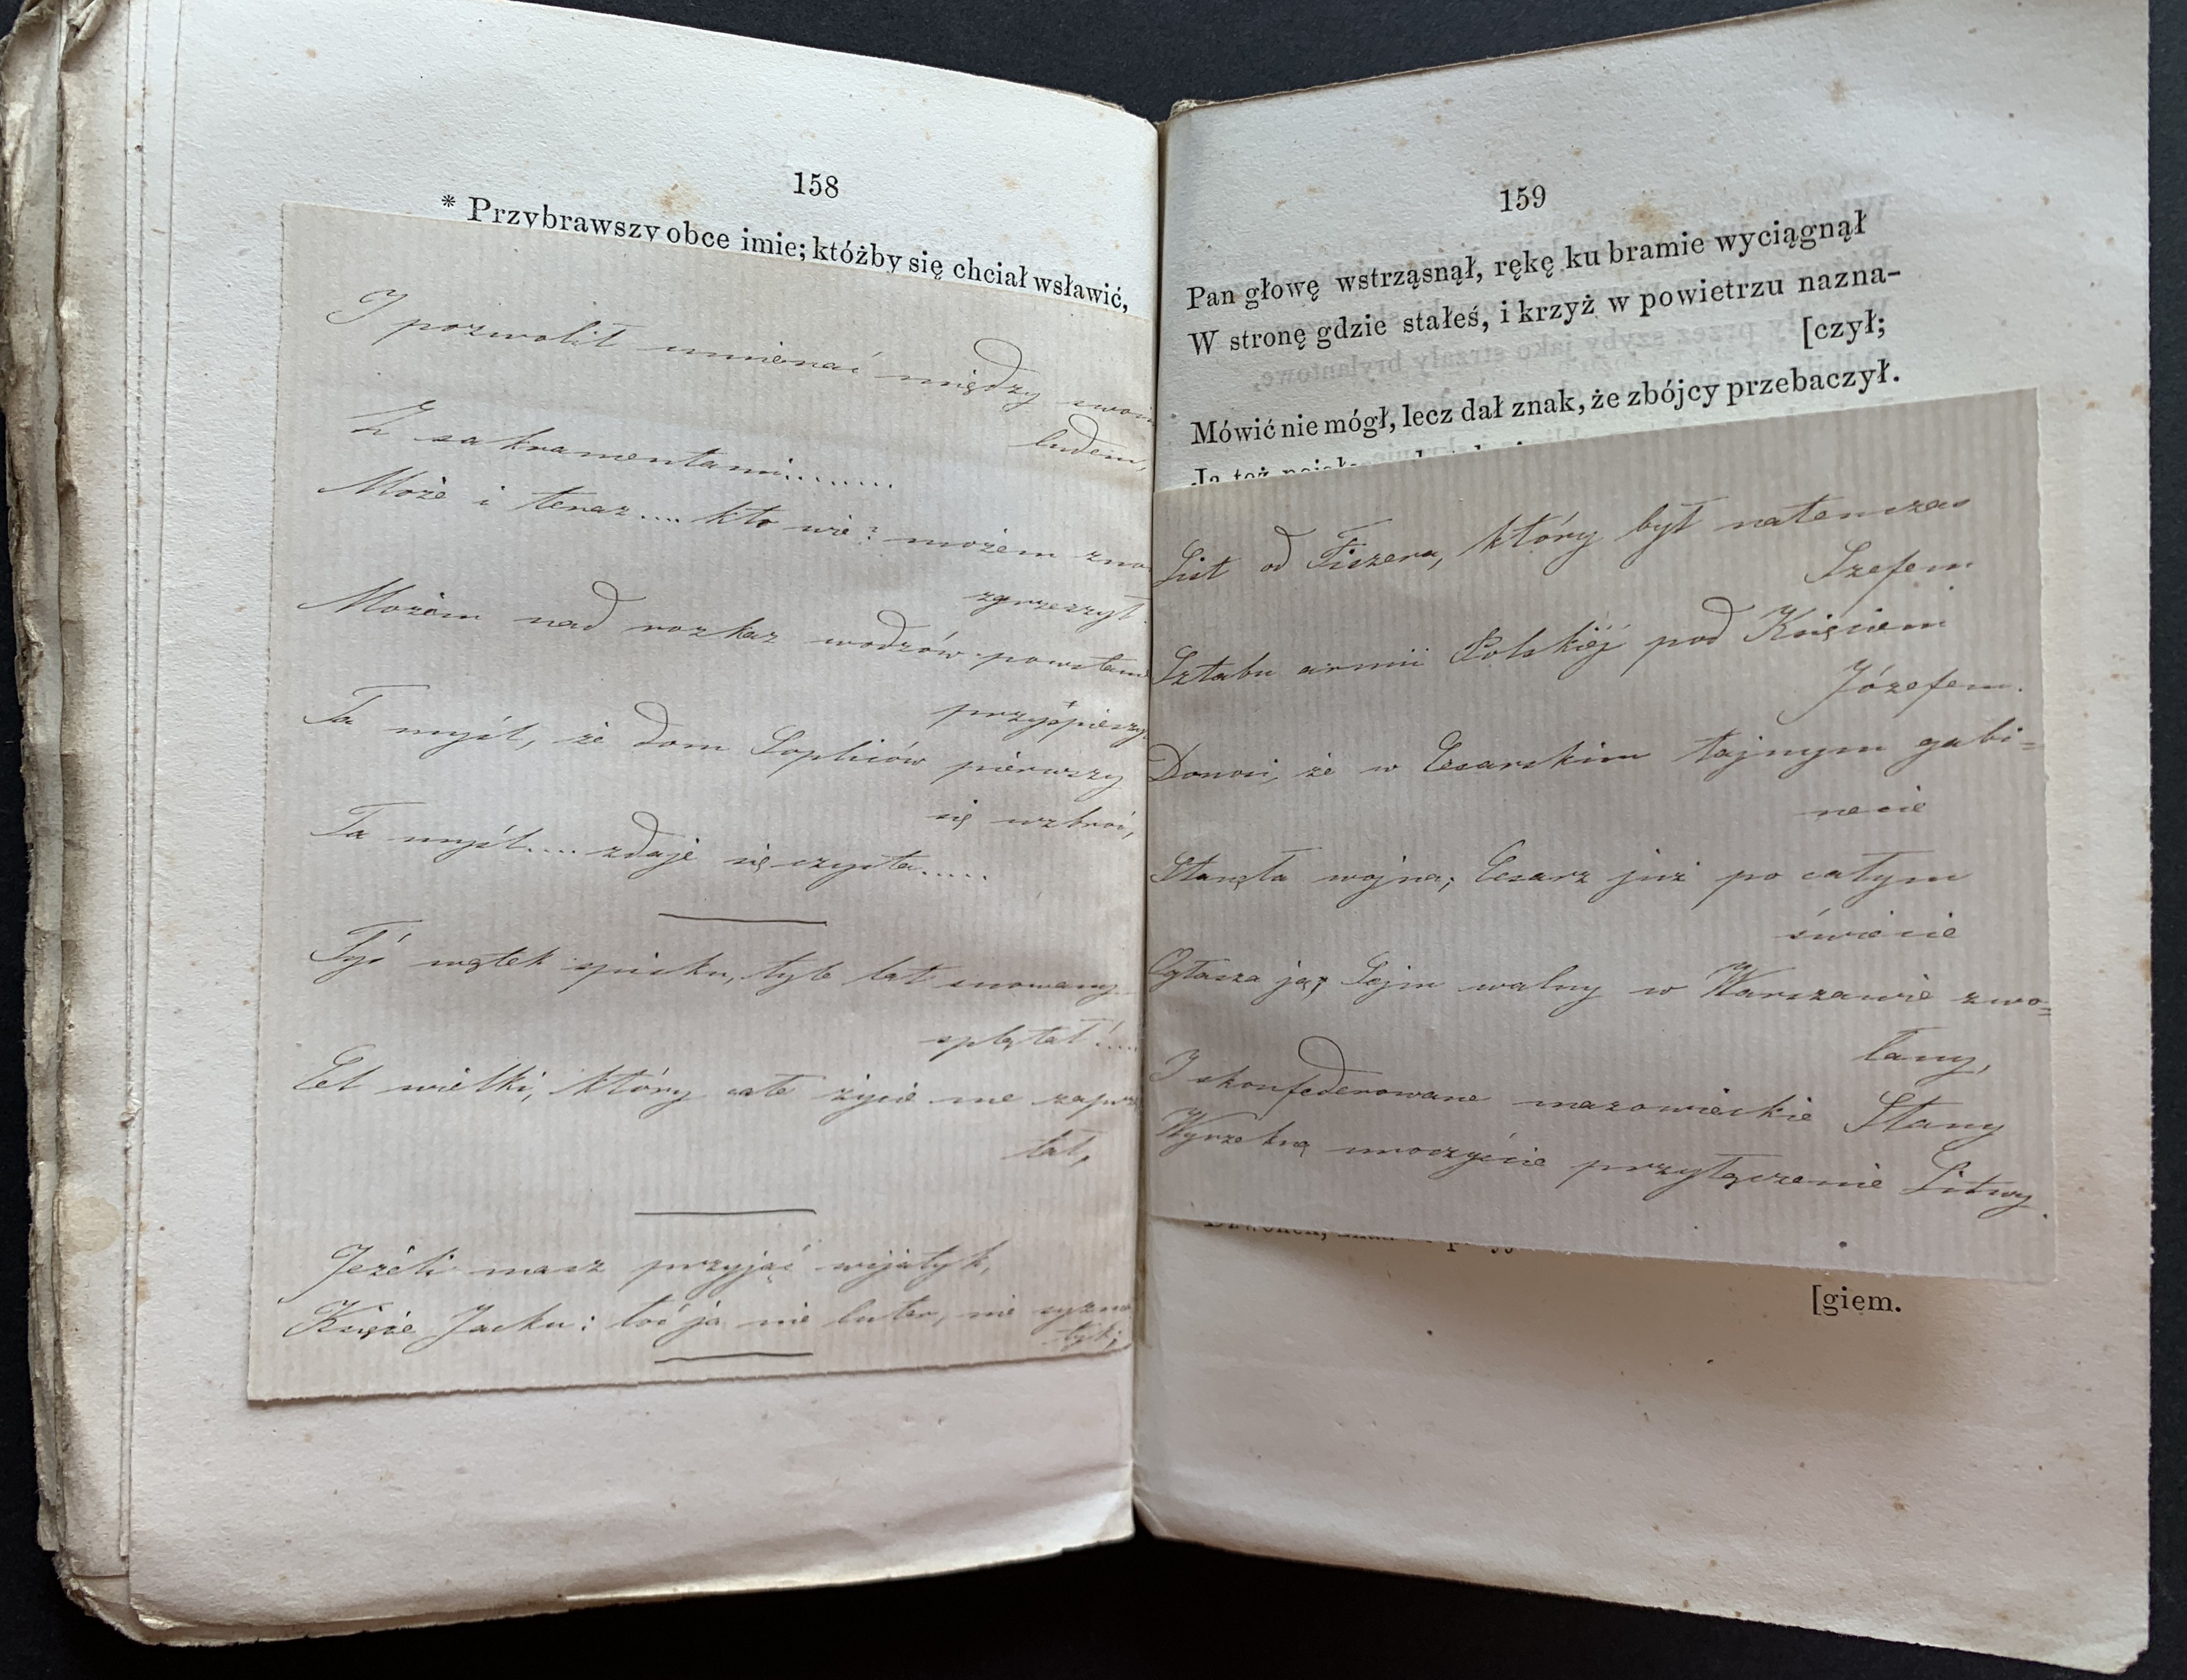 158
* Przybrawszy obce imie; któżby się chciał wsławić,
I pozwolił umierać między swoim
ludem,
Z sakramentami........
Może i teraz.... kto wie? możem zno
zgrzeszył.
Możem nad rozkaz wodzów powstani
przyśpieszy
Ta myśl, że dom Sopliców pierwszy
się uzbroi,
Ta myśl.... zdaje się czysta.....
Tyś wątek spisku, tyle lat snowany
splątał!....
Cel wielki, który całe życie me zaprz
tał,
Jeżeli masz przyjąć wijatyk,
Księże Jacku: toć ja nie luter, nie syzma
tyk;
159
Pan głowę wstrząsnął, rękę ku bramie wyciągnął
W stronę gdzie stałeś, i krzyż w powietrzu nazna-
[czył;
Mówić nie mógł, lecz dał znak, że zbójcy przebaczył.
Ja też
List od Fiszera, który był natenczas
Szefem
Sztabu armii Polskiéj pod Księciem
Józefem.
Donosi, że w Cesarskim tajnym gabi=
necie
Stanęła wojna; Cesarz już po całym
świecie
Ogłasza ją; Sejm walny w Warszawie zwo=
łany,
I skonfederowane mazowieckie Stany
Wyrzekną uroczyście przyłączenie Litwy.
[giem.